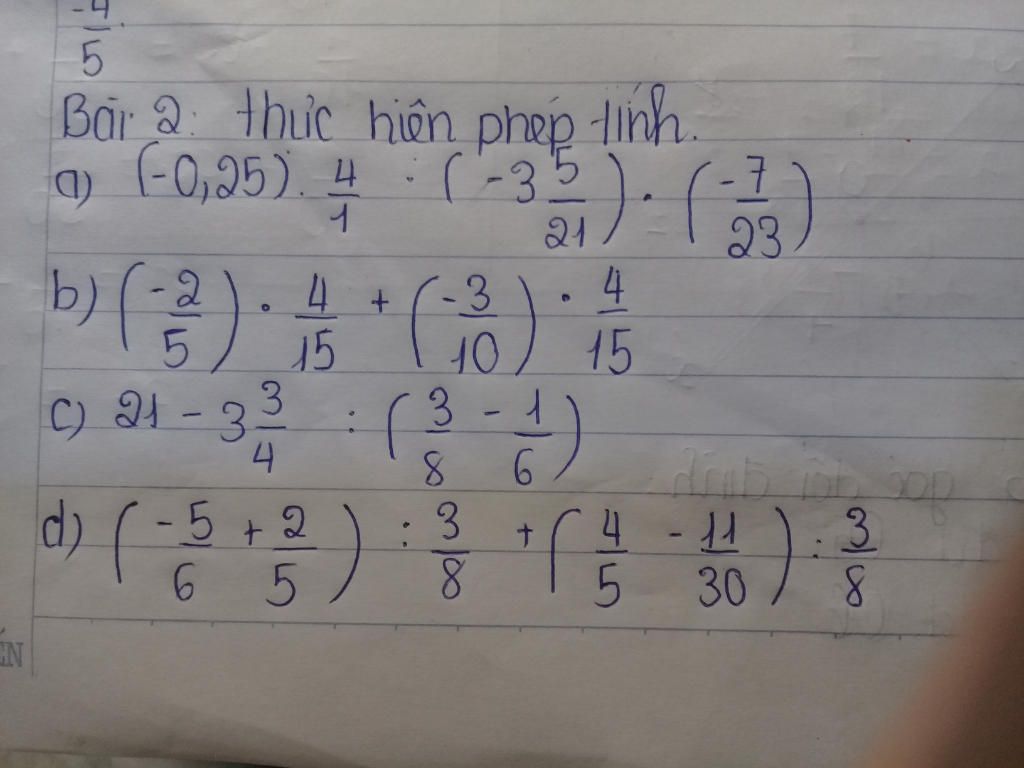 -4/5
Bài 2: thực hiện phép tính.
a) (-0,25) . 4/1 : (-3 5/21) . (-7/23)
b) (-2/5) . 4/15 + (-3/10) . 4/15
c) 21 - 3 3/4 : (3/8 - 1/6)
d) (-5/6 + 2/5) : 3/8 + (4/5 - 11/30) : 3/8